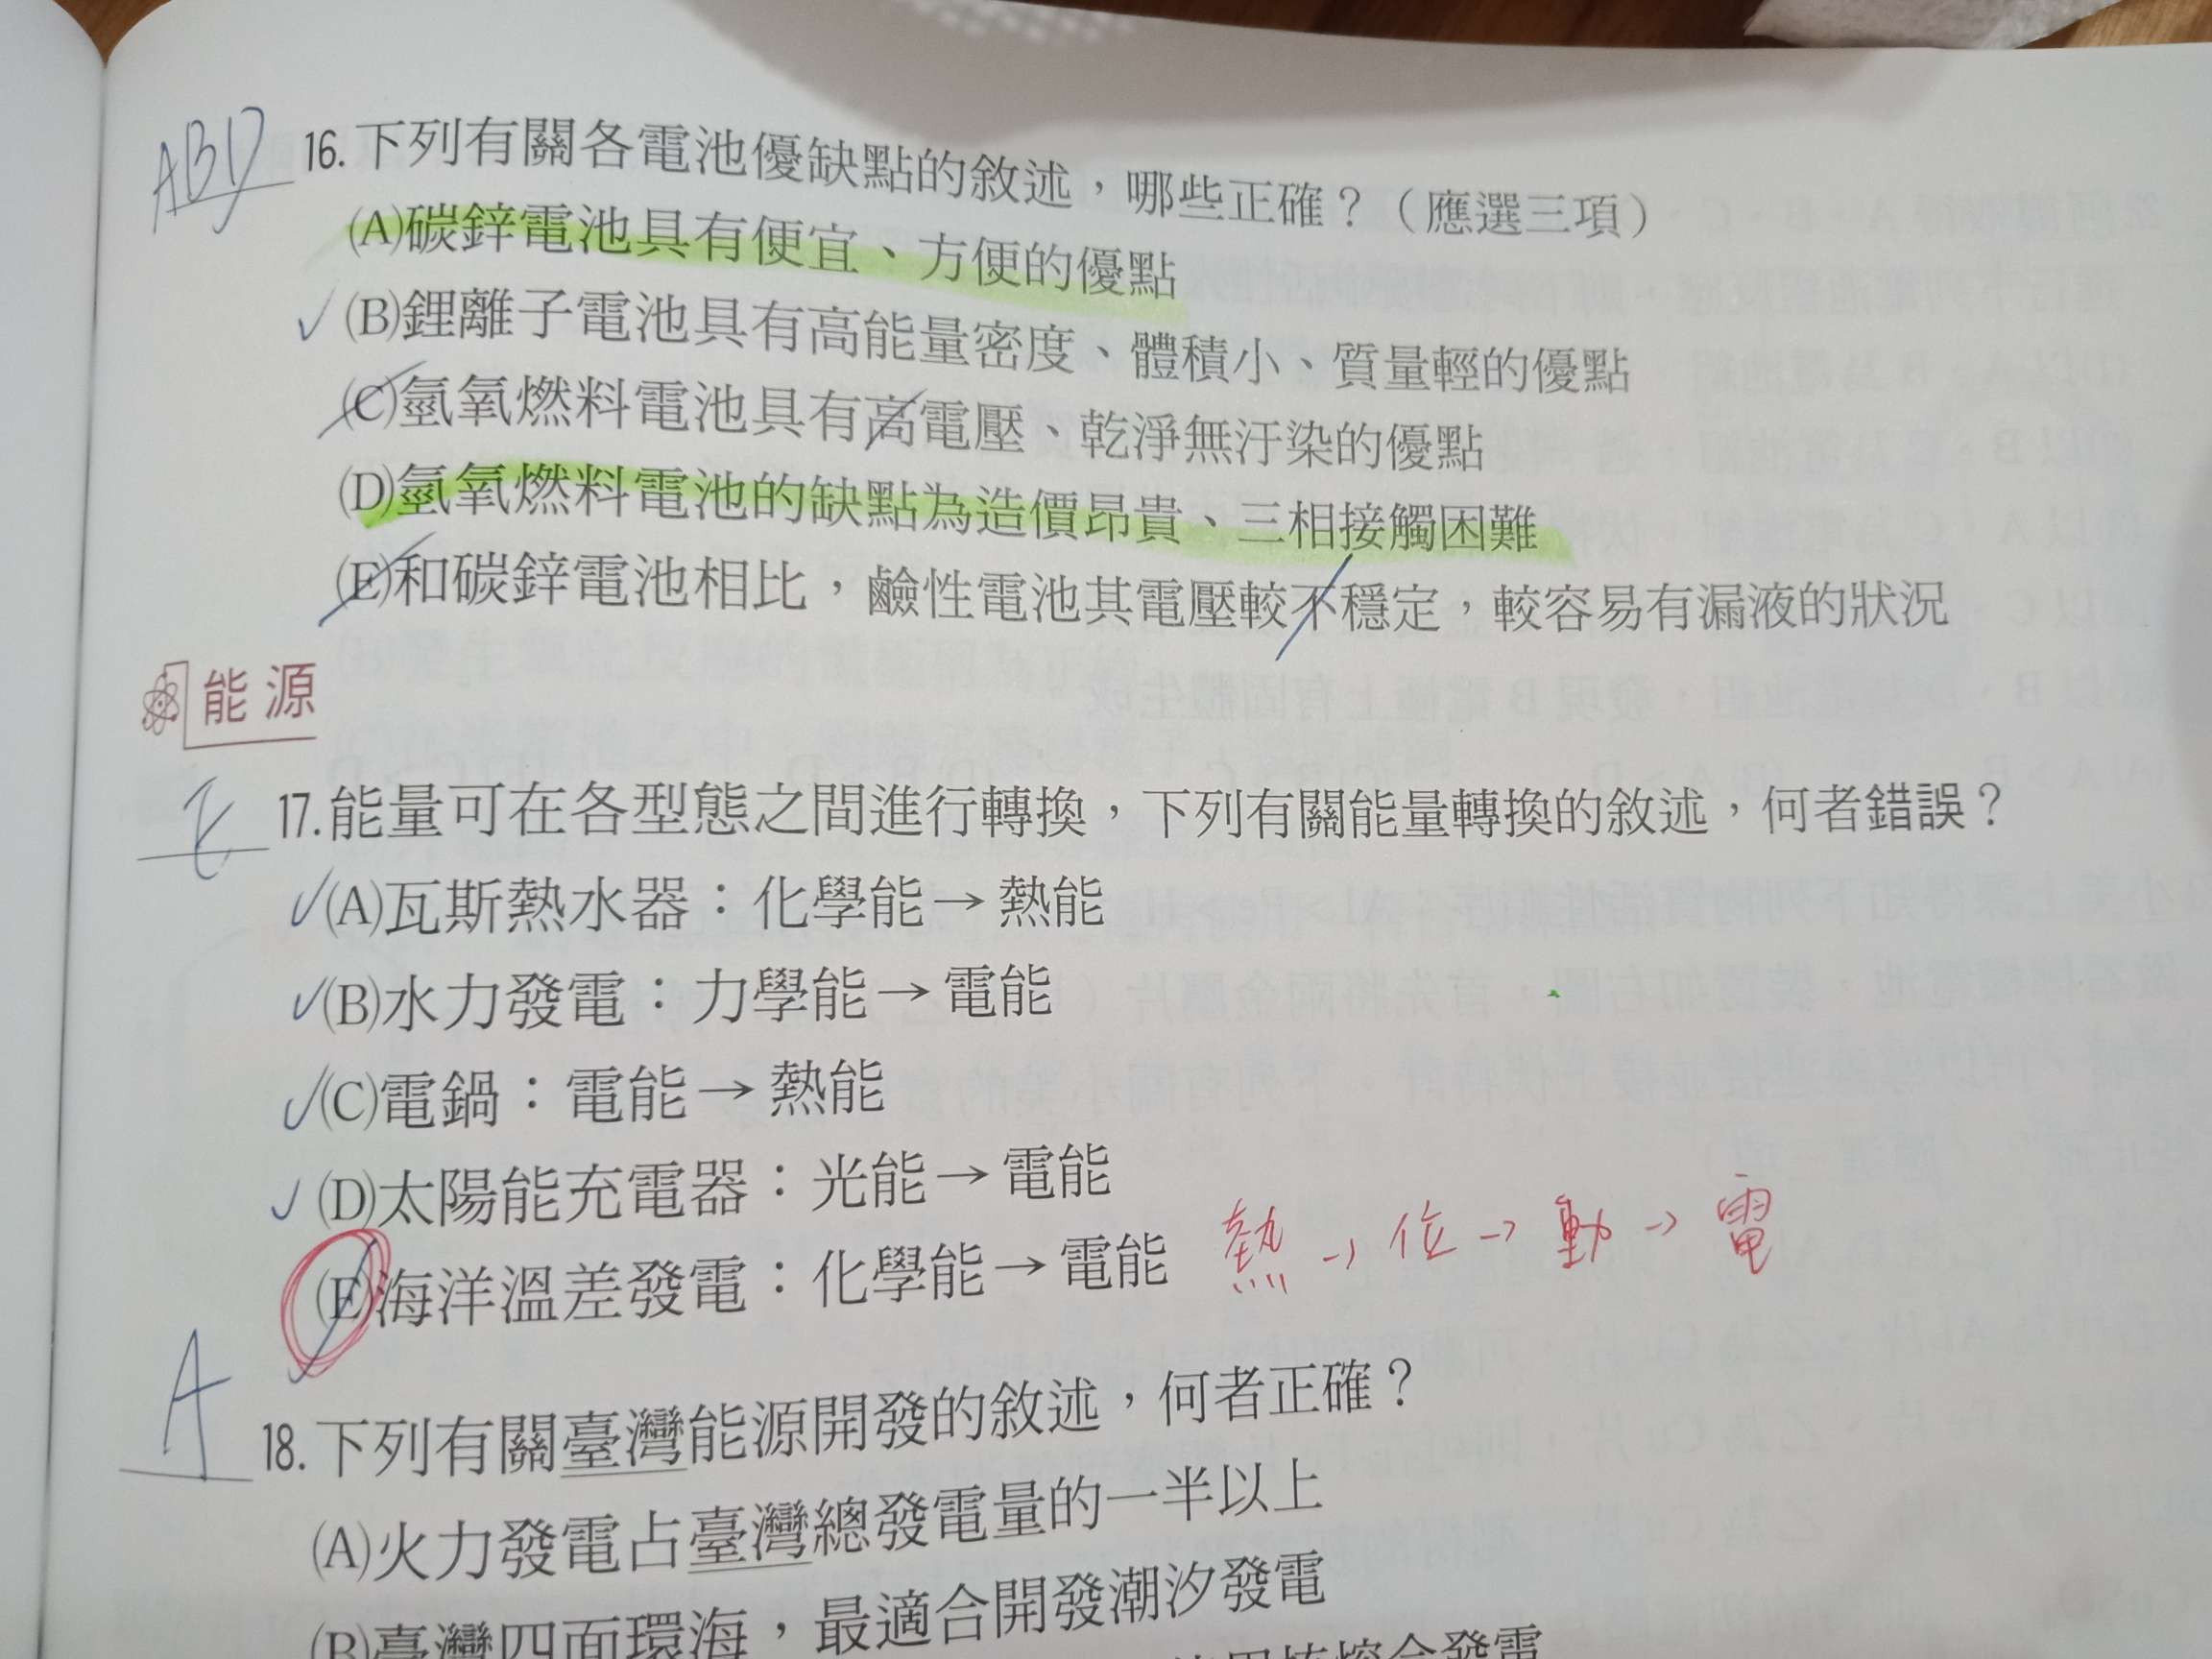 ABD 16.下列有關各電池優缺點的敘述，哪些正確？（應選三項）
(A)碳鋅電池具有便宜、方便的優點
✓(B)鋰離子電池具有高能量密度、體積小、質量輕的優點
(C)氫氧燃料電池具有高電壓、乾淨無汙染的優點
(D)氫氧燃料電池的缺點為造價昂貴、三相接觸困難
(E)和碳鋅電池相比，鹼性電池其電壓較不穩定，較容易有漏液的狀況
能源
E 17.能量可在各型態之間進行轉換，下列有關能量轉換的敘述，何者錯誤？
✓(A)瓦斯熱水器：化學能→熱能
✓(B)水力發電：力學能→電能
✓(C)電鍋：電能→熱能
✓(D)太陽能充電器：光能→電能
(E)海洋溫差發電：化學能→電能 熱→位→動→電
A 18.下列有關臺灣能源開發的敘述，何者正確？
(A)火力發電占臺灣總發電量的一半以上
(B)臺灣四面環海，最適合開發潮汐發電
用核熔合發電